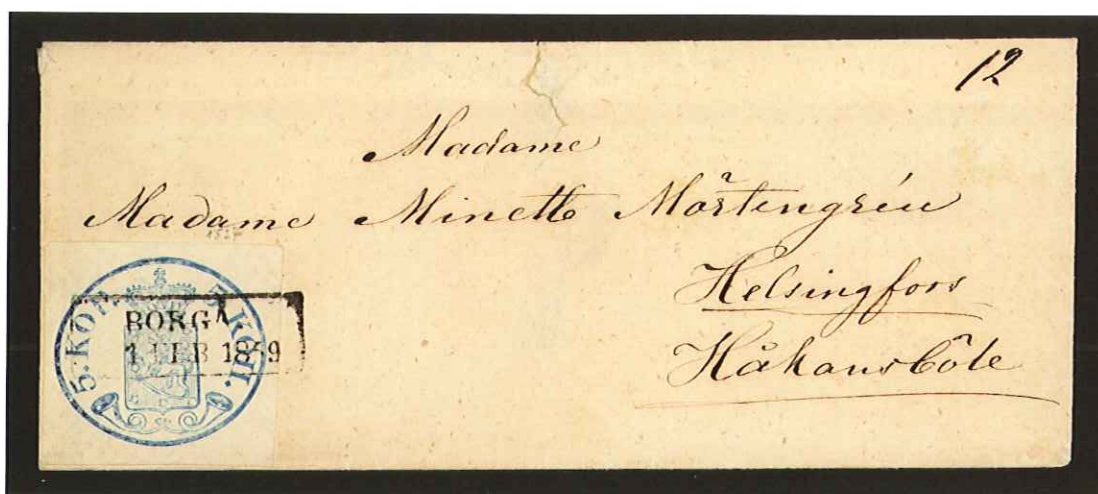 12
Madame
Madame Minette Mörtengréu
Helsingfors
Håkansböle
5. KOP. 5 КОП.
BORGÅ
1 FEB 1859